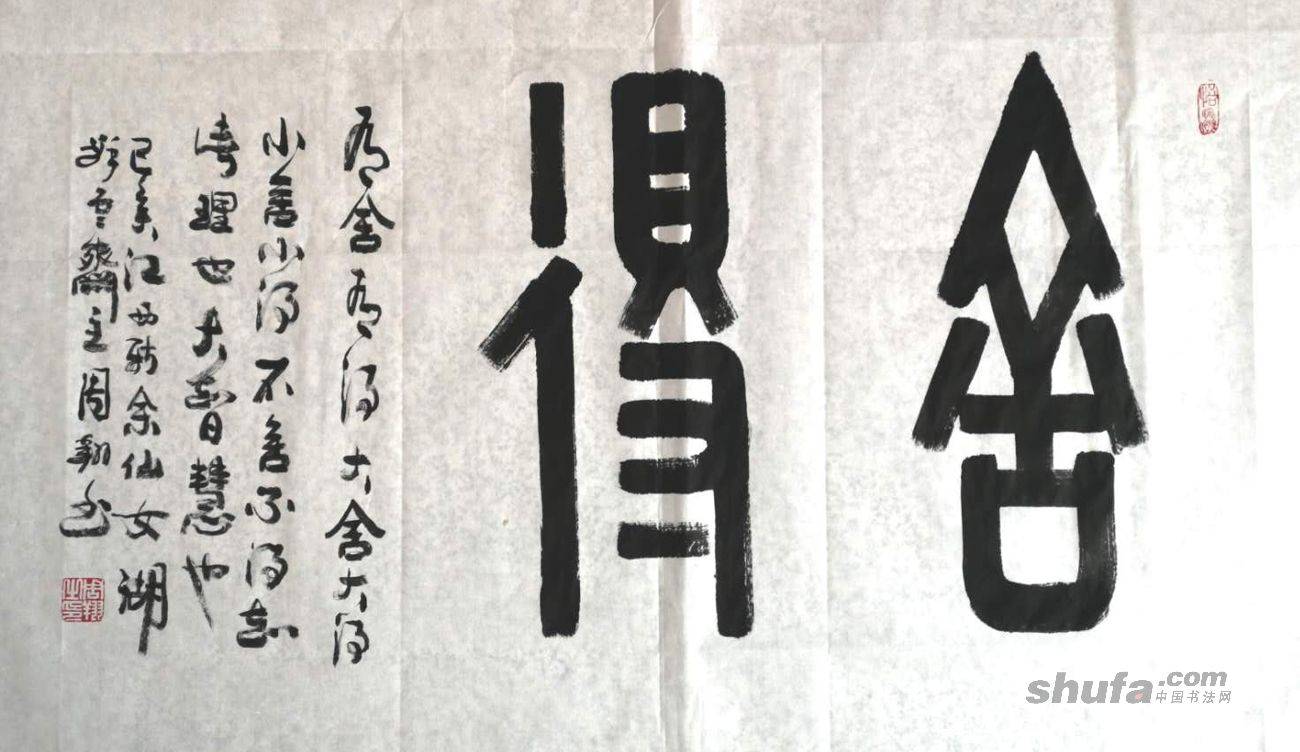 舍
得
有舍有得大舍大得
小舍小得不舍不得知
理也大智慧也
己亥江西新余仙女湖
雲齋主周翔書
周翔之印
shufa.com
中国书法网